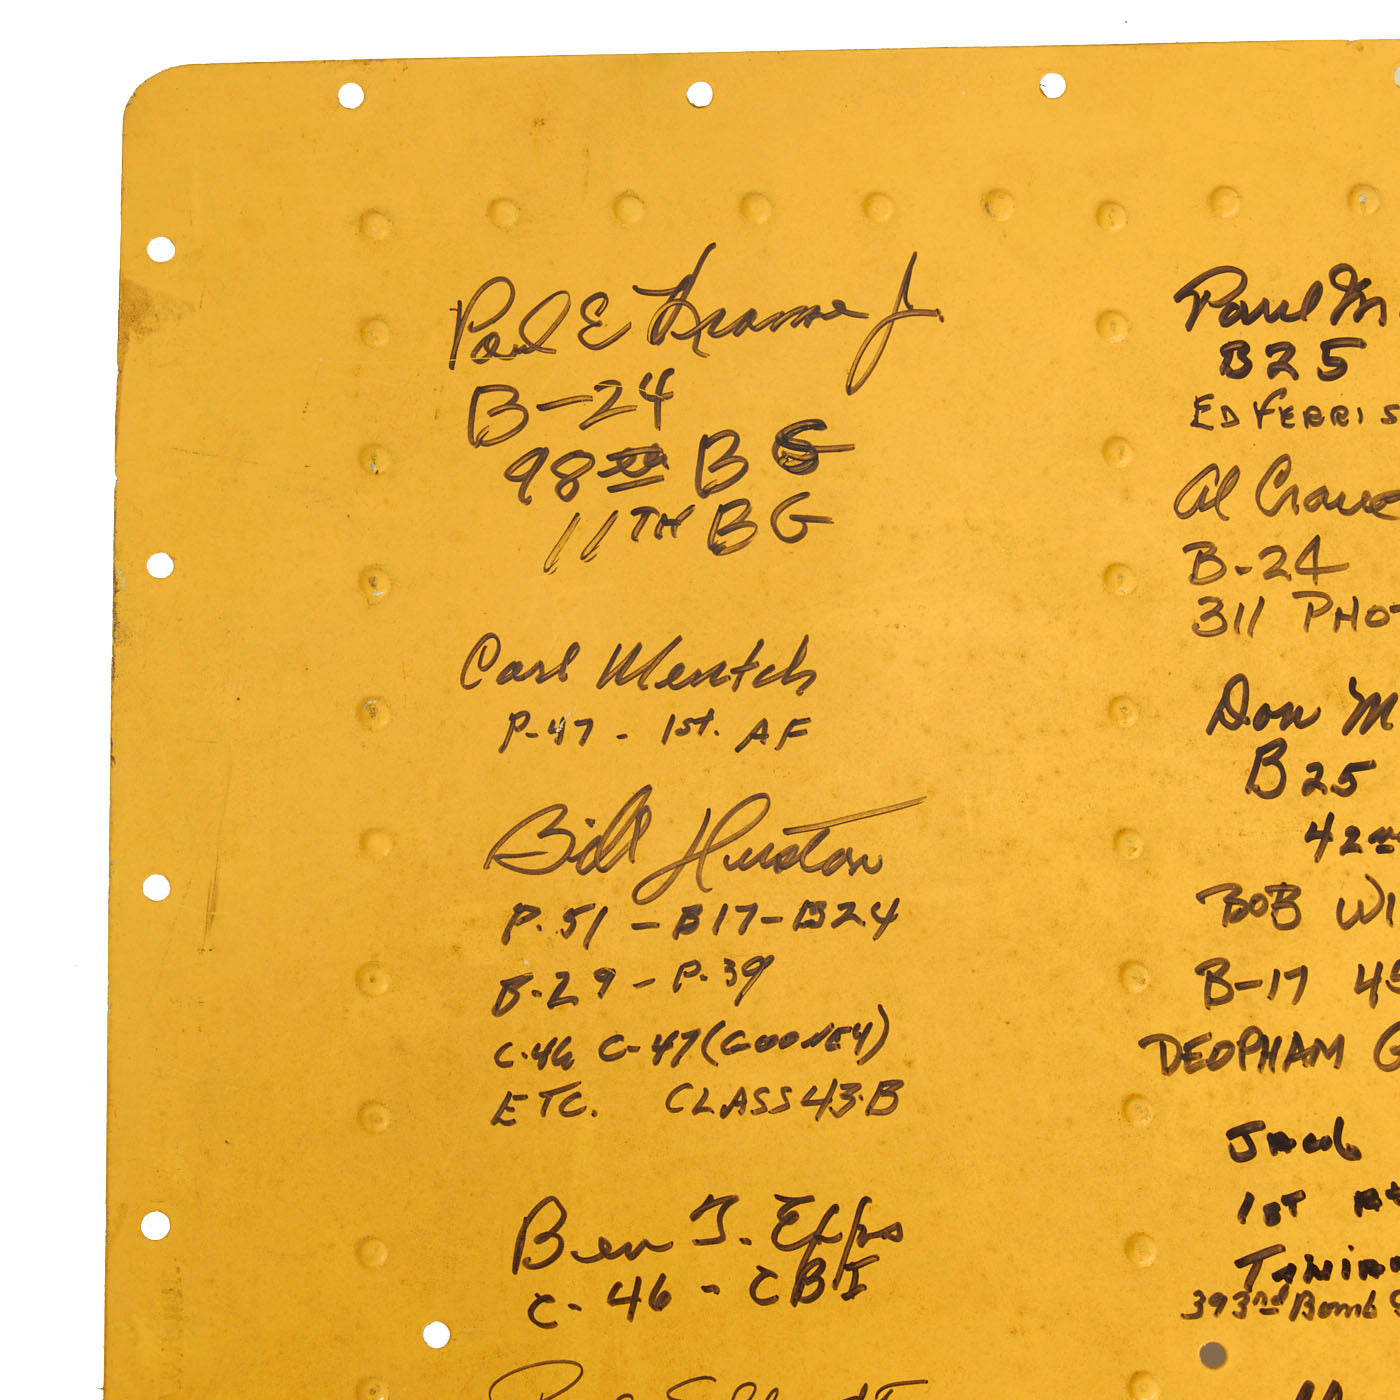 Paul E Kramme Jr.
B-24
98th BG
11TH BG
Carl Mentch
P-47 - 1st. AF
Bill Huston
P.51 - B17 - B24
B-29 - P.39
C-46 C-47 (GOONEY)
ETC. CLASS 43-B
Ben T. Epps
C-46 - CBI
Paul M
B25
ED FERRIS
Al Crane
B-24
311 PHOT
Don M
B25
42nd
BOB WI
B-17 45
DEOPHAM G
Jacob
1ST
393rd Bomb S